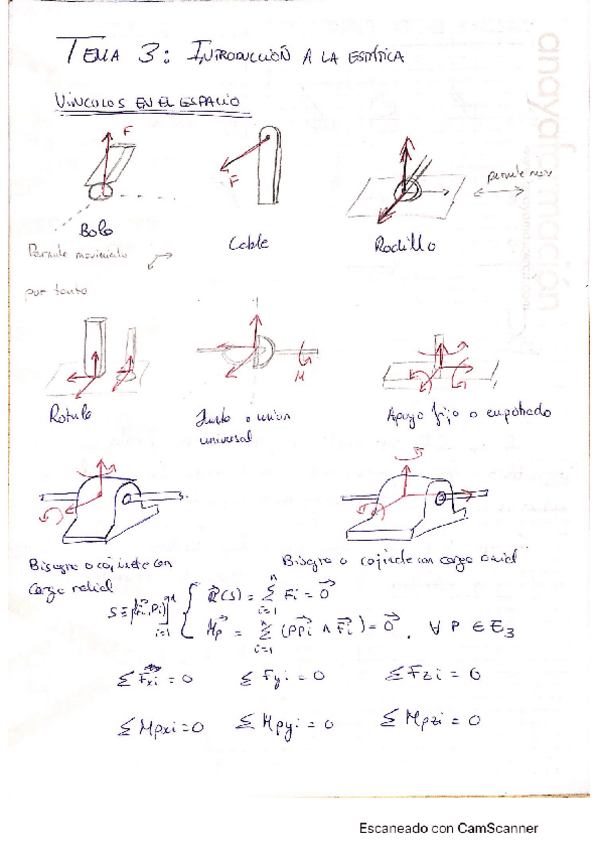 TEMA 3: INTRODUCCIÓN A LA ESTÁTICA
VINCULOS EN EL ESPACIO
F
F
permite mov
Bola
Cable
Rodillo
Permite movimiento
por tanto
M
Rotula
Junta o union
universal
Apoyo fijo o empotrado
Bisagra o cojinete con
carga radial
Bisagra o cojinete con carga axial
S ≡ {(F⃗i, Pi)}ⁿ i=1 { R⃗(S) = Σⁿ i=1 Fi = 0⃗
M⃗p = Σⁿ i=1 (PP⃗i ∧ F⃗i) = 0⃗, ∀ P ∈ E3
Σ F⃗xi = 0 Σ Fyi = 0 Σ Fzi = 0
Σ Mpxi = 0 Σ Mpyi = 0 Σ Mpzi = 0
Escaneado con CamScanner